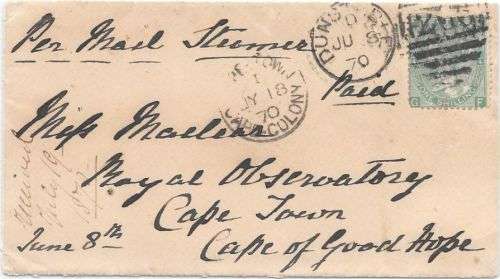 Per Mail Steamer
Paid
Miss Maclear
Royal Observatory
Cape Town
Cape of Good Hope
June 8th
Received
July 19
JU 8
70
JY 18
70
CAPE COLONY
G F